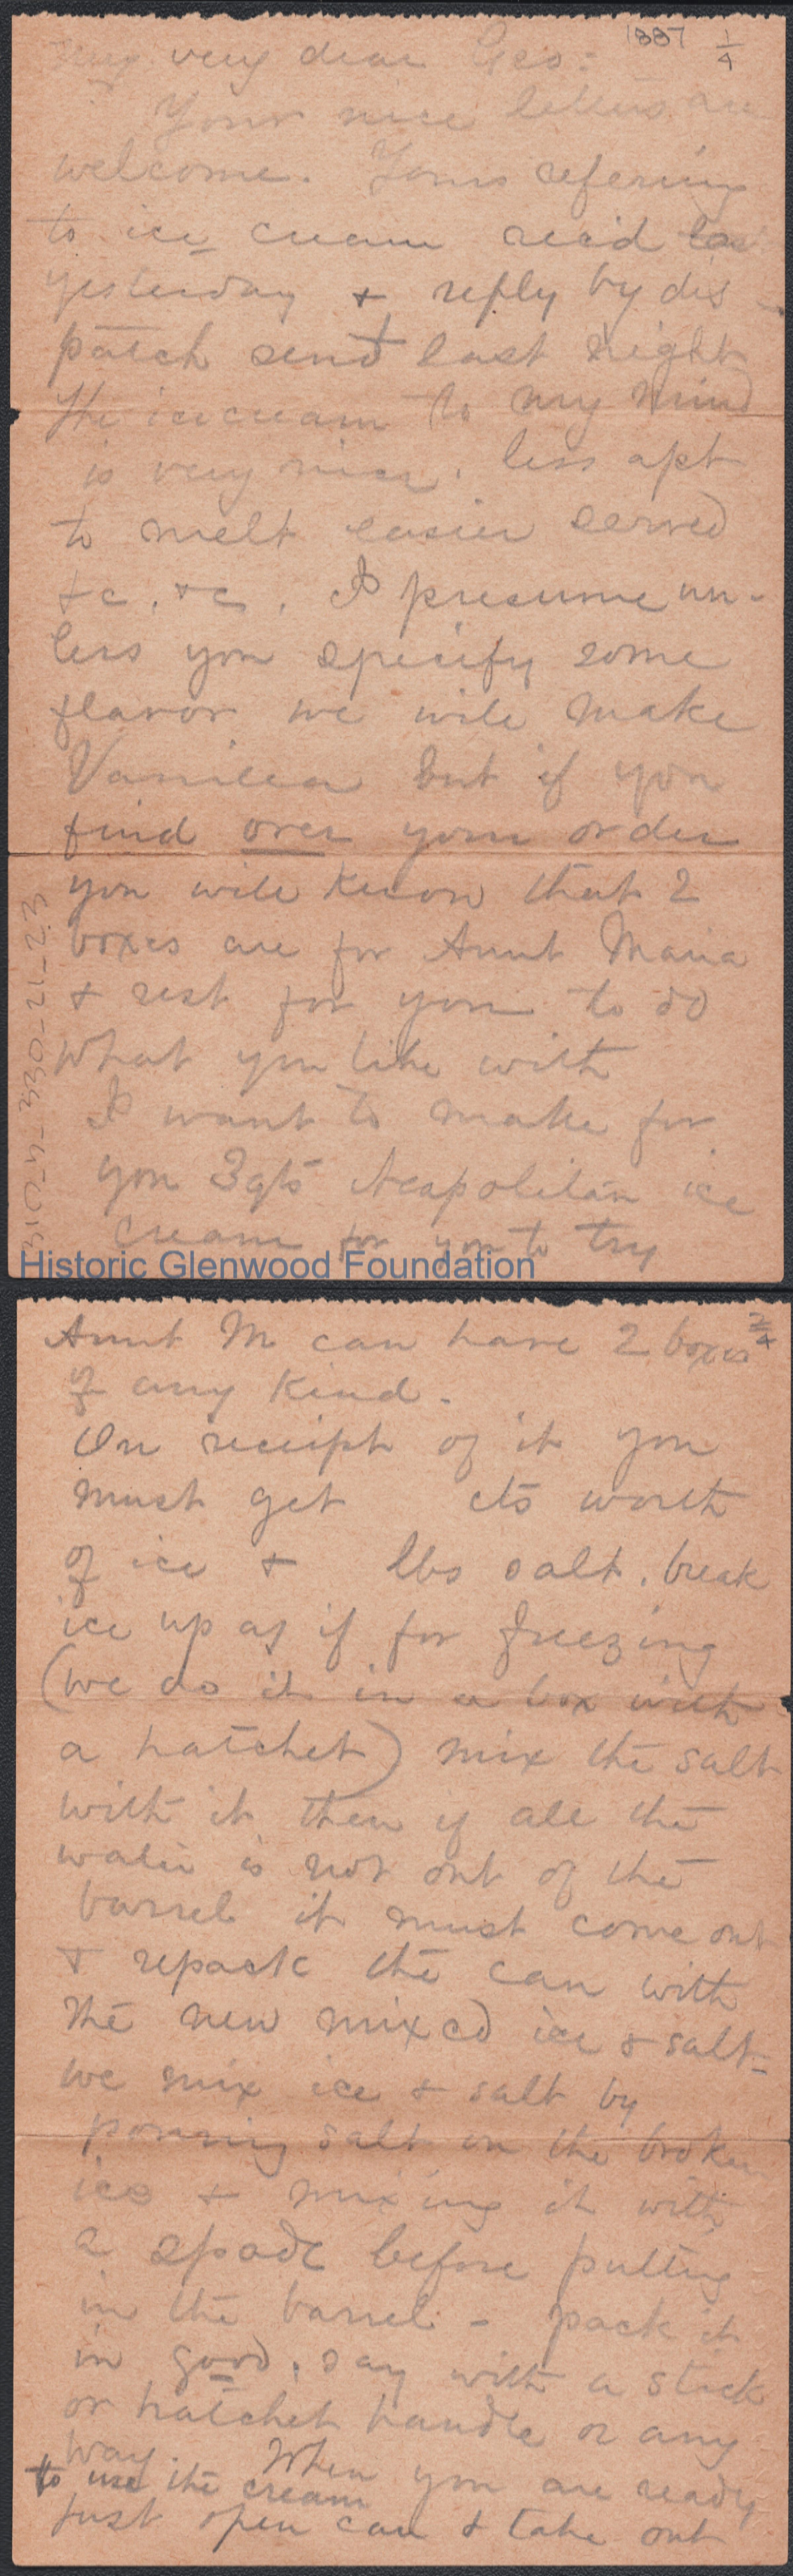 1887 1/4
My very dear Geo:
Your nice letters are
welcome. Yours refering
to ice cream rec'd
yesterday & reply by dis-
patch send last night
The icecream to my mind
is very nice, less apt
to melt easier served
&c. &c. I presume un-
less you specify some
flavor we will make
Vanilla but if you
find over your order
you will know that 2
boxes are for Aunt Maria
& rest for you to do
what you like with
I want to make for
you 3 qts Neapolitan ice
cream for you to try
310-4-330-21-23
Historic Glenwood Foundation
2/4
Aunt M can have 2 boxes
of any kind.
On receipt of it you
must get cts worth
of ice & lbs salt. break
ice up as if for freezing
(we do it in a box with
a hatchet) mix the salt
with it then if all the
water is not out of the
barrel it must come out
& repack the can with
the new mixed ice & salt-
we mix ice & salt by
pouring salt on the broken
ice & mixing it with
a spade before putting
in the barrel - pack it
in good, say with a stick
or hatchet handle or any
way. When you are ready
to use the cream
just open can & take out